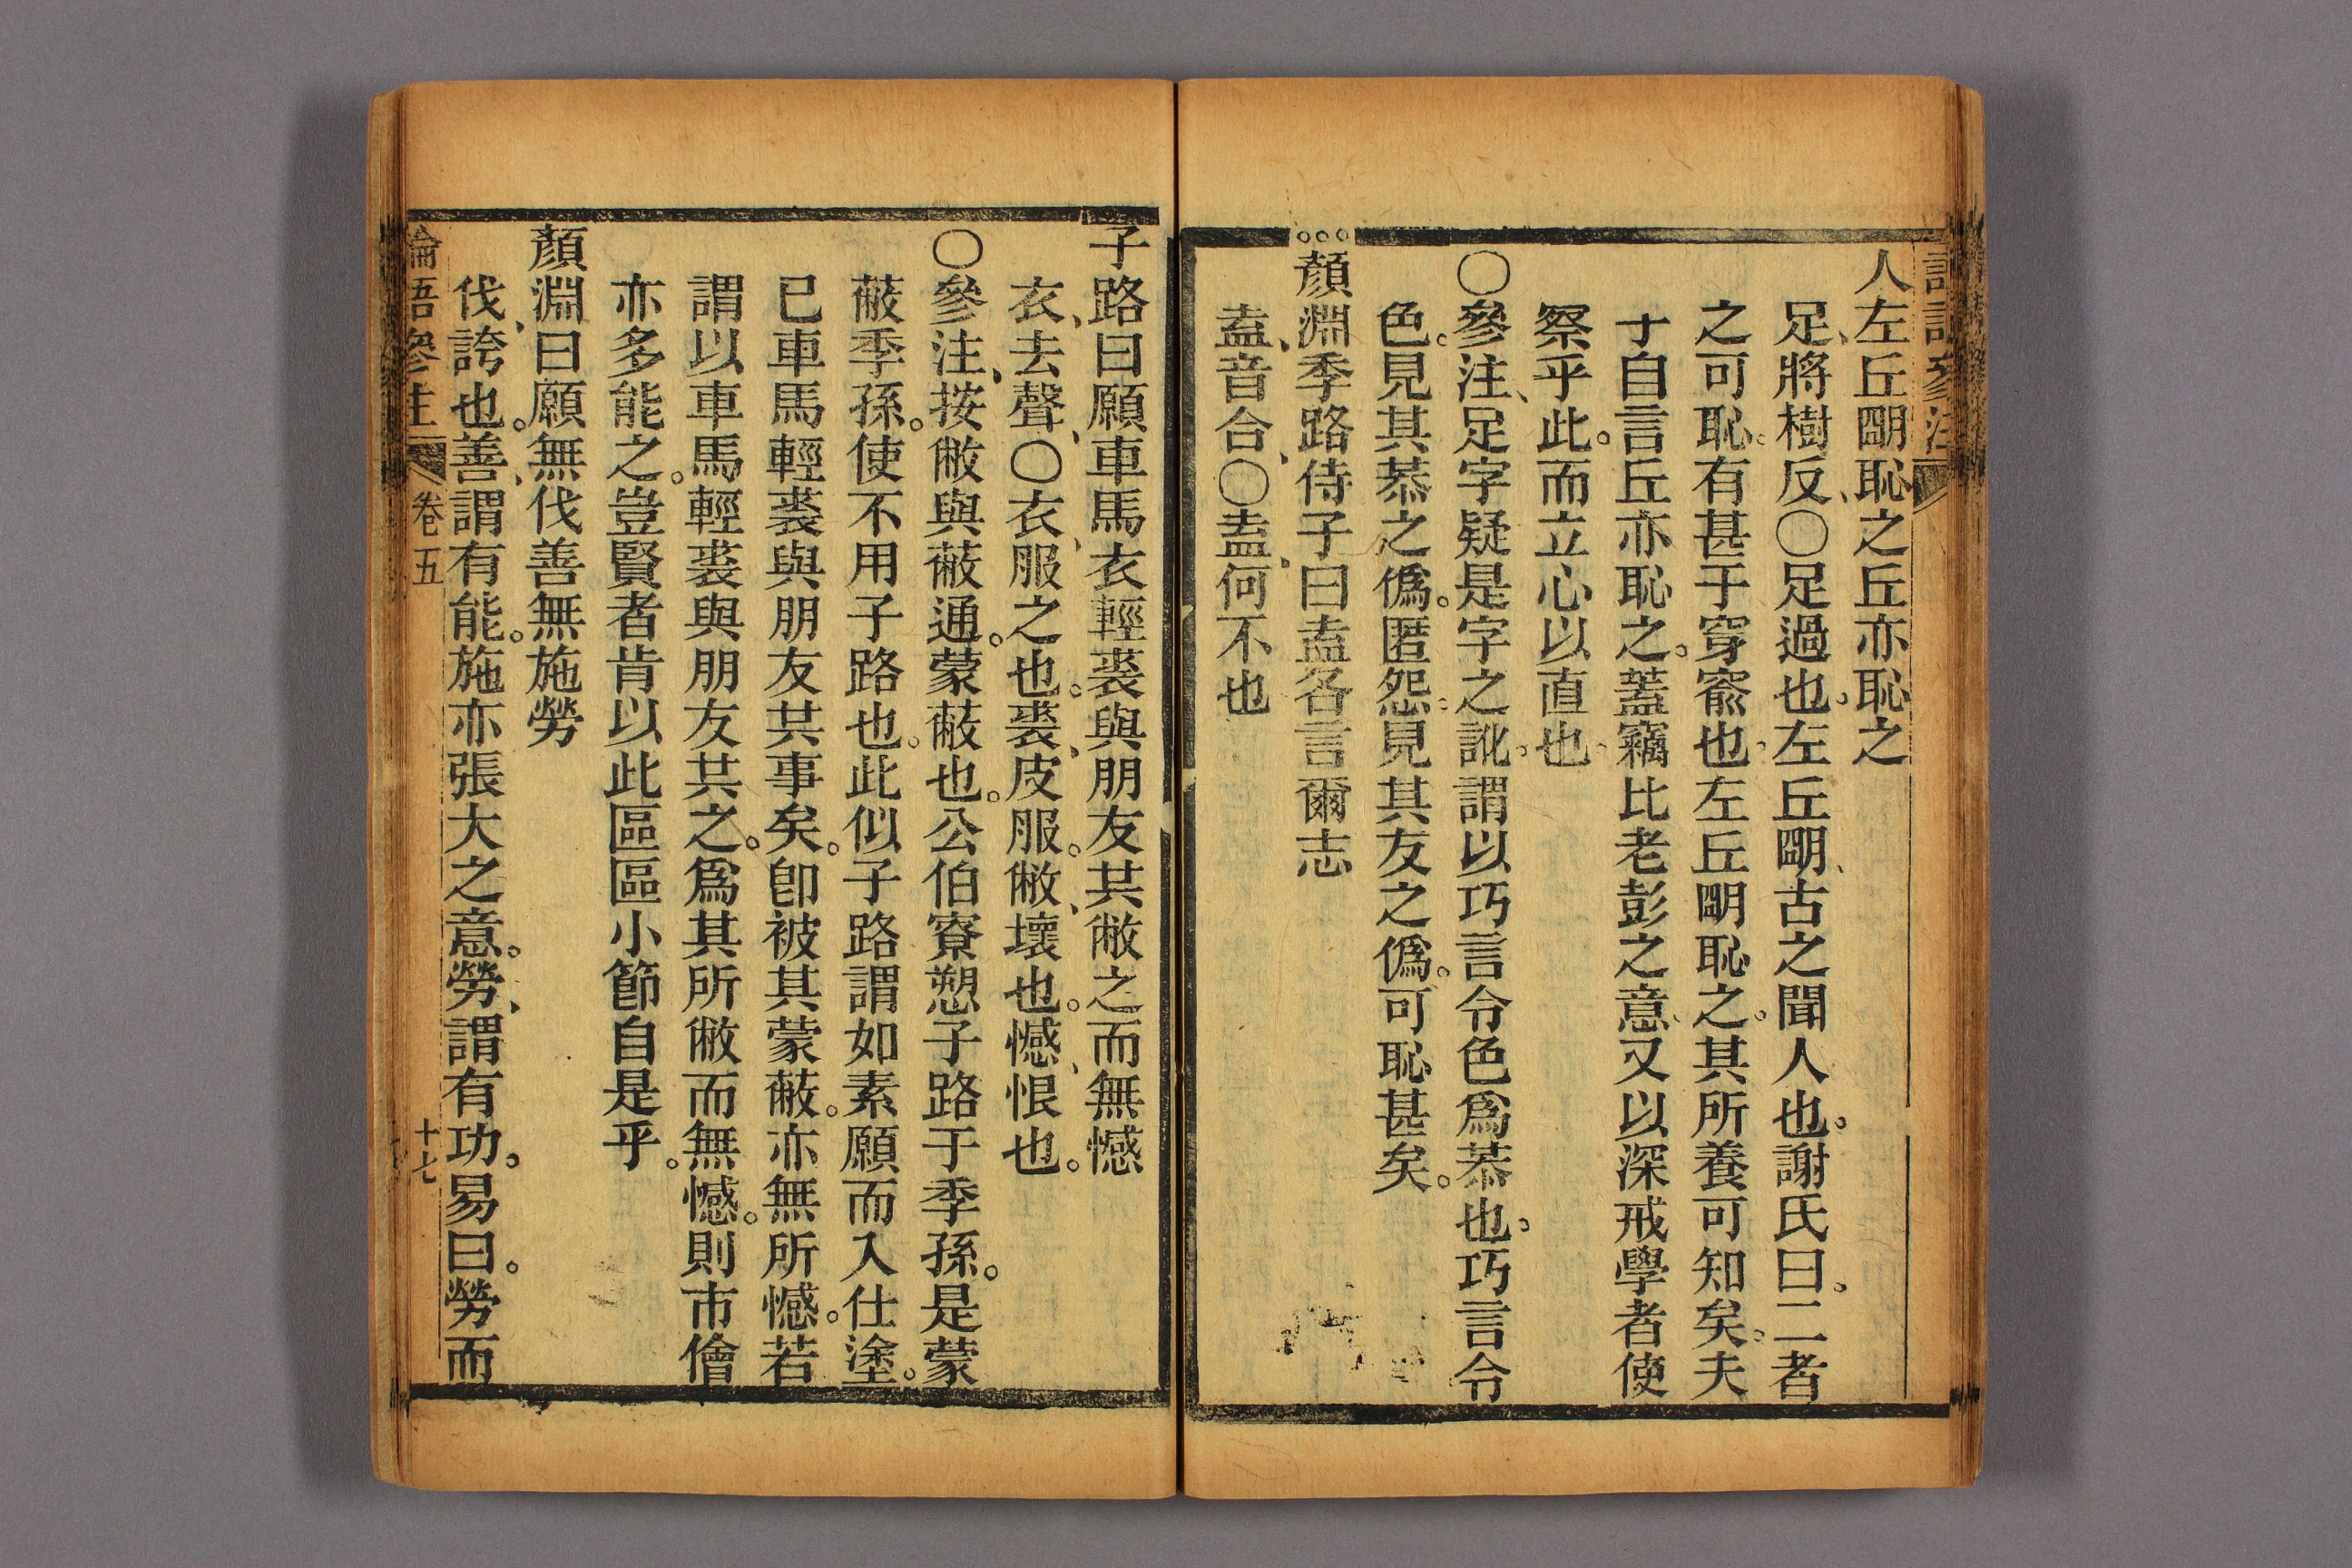 人左丘朙恥之丘亦恥之
足、將樹反、〇足過也。左丘朙、古之聞人也。謝氏曰。二者
之可恥。有甚于穿窬也。左丘朙恥之。其所養可知矣。夫
子自言丘亦恥之。蓋竊比老彭之意、又以深戒學者使
察乎此。而立心以直也。
〇參注、足字疑是字之訛。謂以巧言令色爲恭也。巧言令
色。見其恭之僞。匿怨。見其友之僞。可恥甚矣。
。。。顏淵季路侍子曰盍各言爾志
盍、音合、〇盍、何不也
子路曰願車馬衣輕裘與朋友共敝之而無憾
衣、去聲、〇衣、服之也。裘、皮服。敝、壞也。憾、恨也。
〇參注、按敝與蔽通。蒙蔽也。公伯寮愬子路于季孫。是蒙
蔽季孫。使不用子路也。此似子路謂如素願而入仕塗。
已車馬輕裘與朋友共事矣。卽被其蒙蔽。亦無所憾。若
謂以車馬輕裘與朋友共之。爲其所敝而無憾。則市儈
亦多能之。豈賢者肯以此區區小節自是乎。
顏淵曰願無伐善無施勞
伐、誇也。善、謂有能。施亦張大之意。勞、謂有功。易曰。勞而
論語參注 卷五 十七